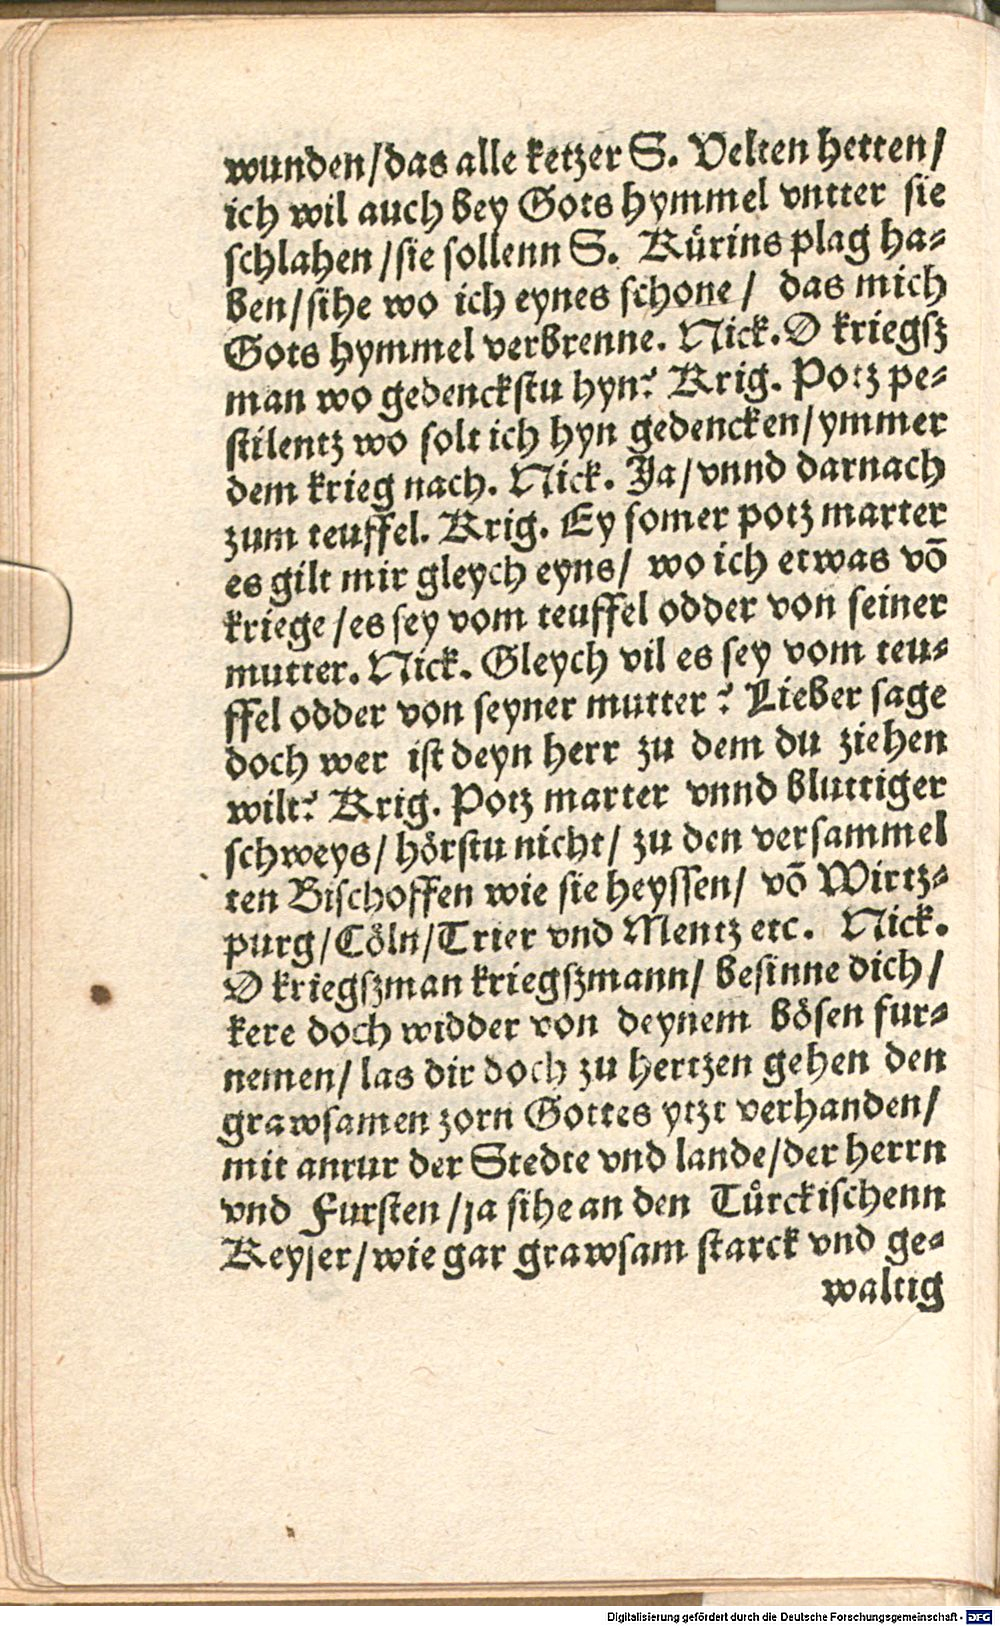 wunden/das alle ketzer S. Velten hetten/
ich wil auch bey Gots hymmel vntter sie
schlahen/sie sollenn S. Kürins plag ha-
ben/sihe wo ich eynes schone/ das mich
Gots hymmel verbrenne. Nick. O kriegsz
man wo gedenckstu hyn? Krig. Potz pe-
stilentz wo solt ich hyn gedencken/ymmer
dem krieg nach. Nick. Ja/vnnd darnach
zum teuffel. Krig. Ey somer potz marter
es gilt mir gleych eyns/ wo ich etwas võ
kriege/es sey vom teuffel odder von seiner
mutter. Nick. Gleych vil es sey vom teu-
ffel odder von seyner mutter? Lieber sage
doch wer ist deyn herr zu dem du ziehen
wilt? Krig. Potz marter vnnd bluttiger
schweys/hörstu nicht/ zu den versammel
ten Bischoffen wie sie heyssen/ võ Wirtz-
purg/Cöln/Trier vnd Mentz etc. Nick.
O kriegszman kriegszmann/ besinne dich/
kere doch widder von deynem bösen fur-
nemen/las dir doch zu hertzen gehen den
grawsamen zorn Gottes ytzt verhanden/
mit anrur der Stedte vnd lande/der herrn
vnd Fursten/ja sihe an den Tůrckischenn
Keyser/wie gar grawsam starck vnd ge-
waltig
Digitalisierung gefördert durch die Deutsche Forschungsgemeinschaft - DFG